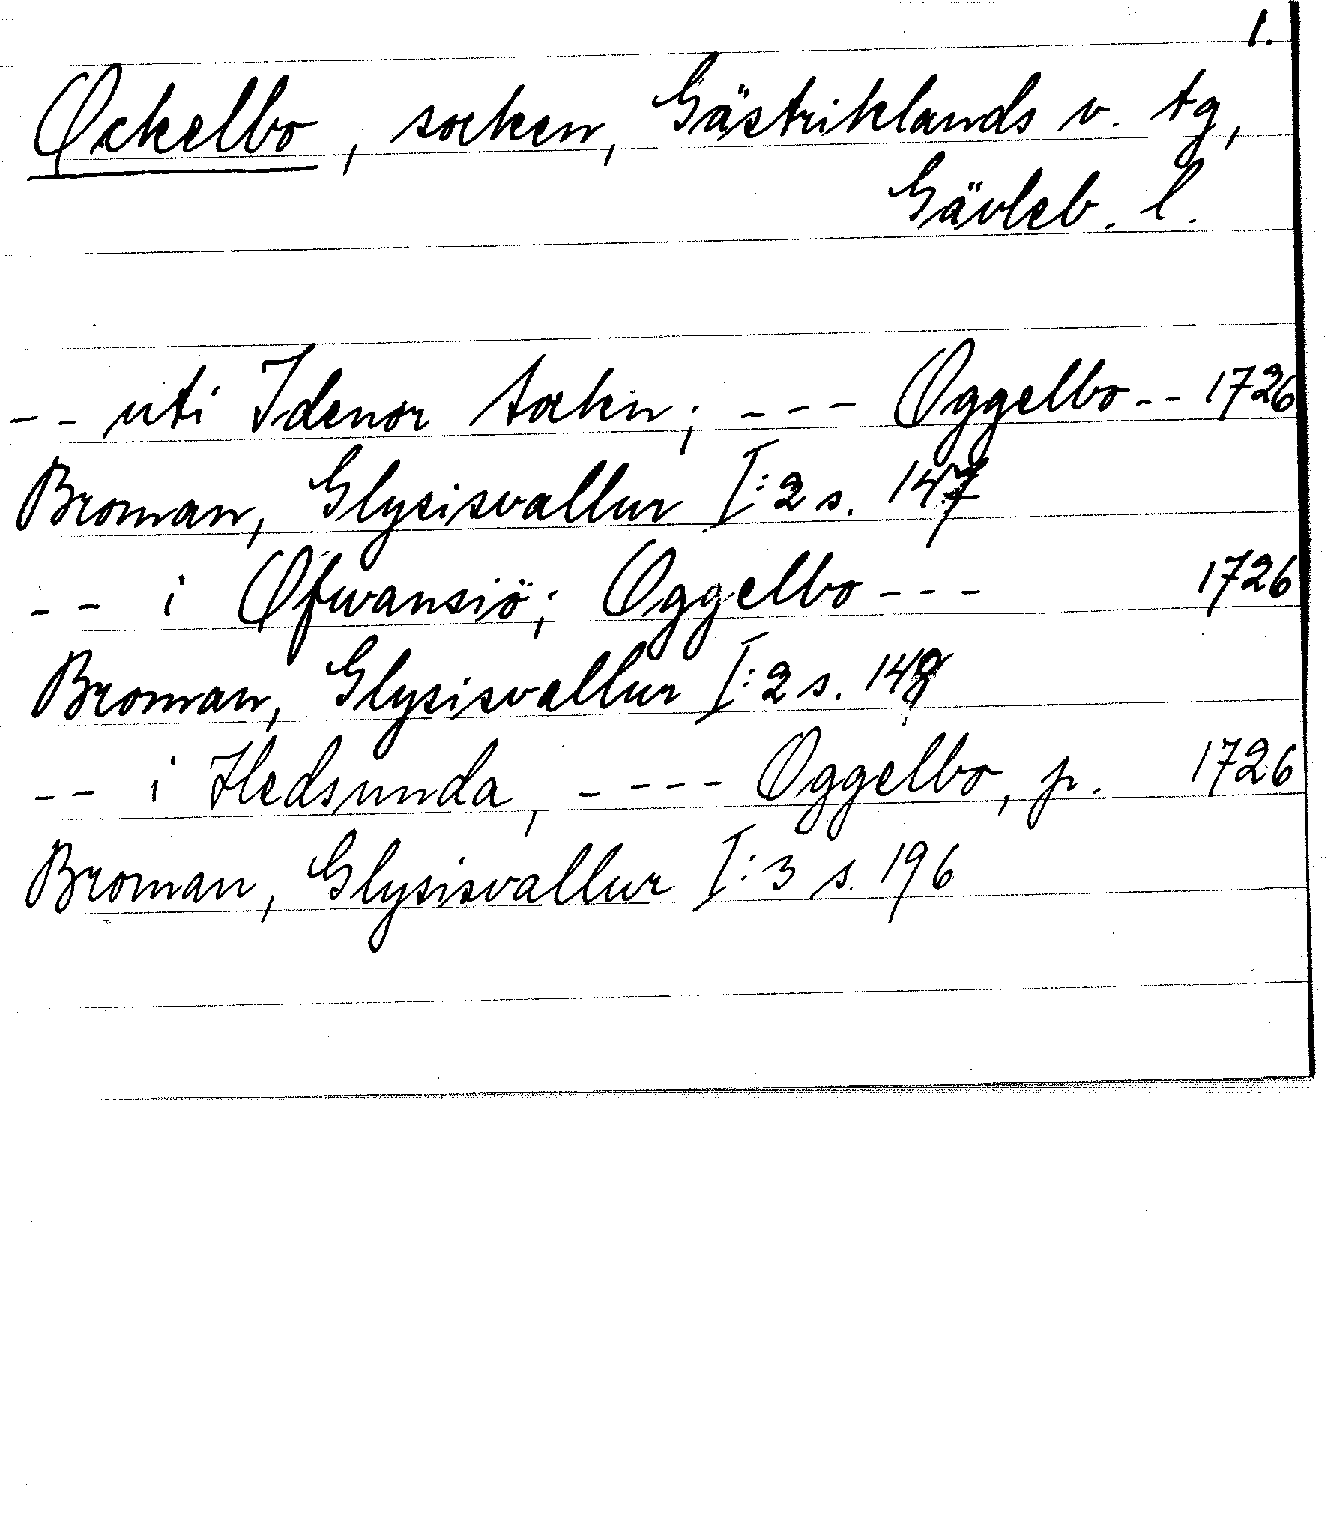 1.
Ockelbo, socken, Gästriklands v. tg,
Gävleb. l.
-- uti Idenor Sockn; --- Oggelbo -- 1726
Broman, Glysisvallur I:2 s. 147
-- i Ofwansiö; Oggelbo --- 1726
Broman, Glysisvallur I:2 s. 148
-- i Hedsunda, ---- Oggelbo, p. 1726
Broman, Glysisvallur I:3 s. 196